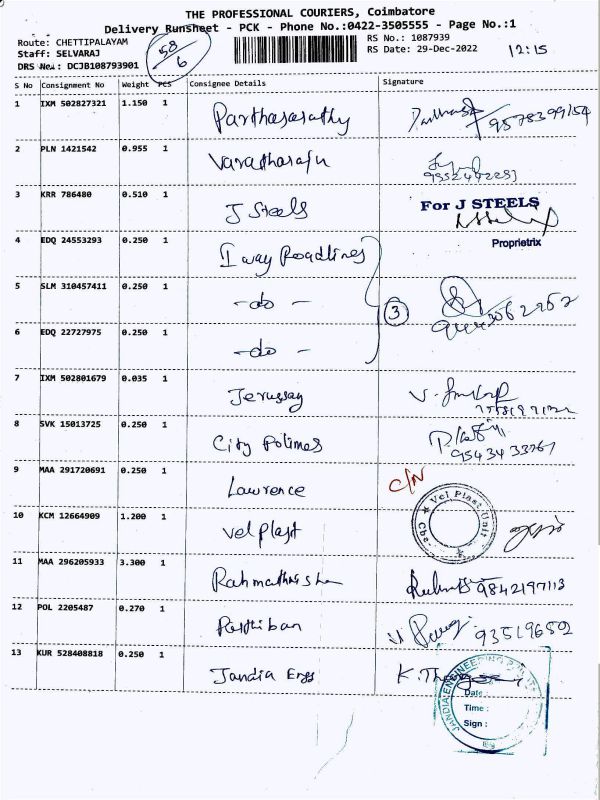 THE PROFESSIONAL COURIERS, Coimbatore
Delivery Runsheet - PCK - Phone No.:0422-3505555 - Page No.:1
Route: CHETTIPALAYAM
Staff: SELVARAJ
DRS No.: DCJB108793901
58/6
RS No.: 1087939
RS Date: 29-Dec-2022
12:15
S No Consignment No Weight PCS Consignee Details Signature
1 IXM 502827321 1.150 1 Parthasarathy 9578399154
2 PLN 1421542 0.955 1 Varatharaju
3 KRR 786480 0.510 1 J Steels For J STEELS
Proprietrix
4 EDQ 24553293 0.250 1 I way Roadlines
5 SLM 310457411 0.250 1 -do-
3
6 EDQ 22727975 0.250 1 -do-
7 IXM 502801679 0.035 1 Jerussay
8 SVK 15013725 0.250 1 City Polimes 9543433767
9 MAA 291720691 0.250 1 Lawrence C/N
10 KCM 12664909 1.200 1 Vel plast Vel Plast Unit Cbe-
11 MAA 296205933 3.300 1 9842197113
12 POL 2205487 0.270 1 Parthiban
13 KUR 528408818 0.250 1 Jandia Engg
JANDIA ENGINEERING
Date:
Time :
Sign :